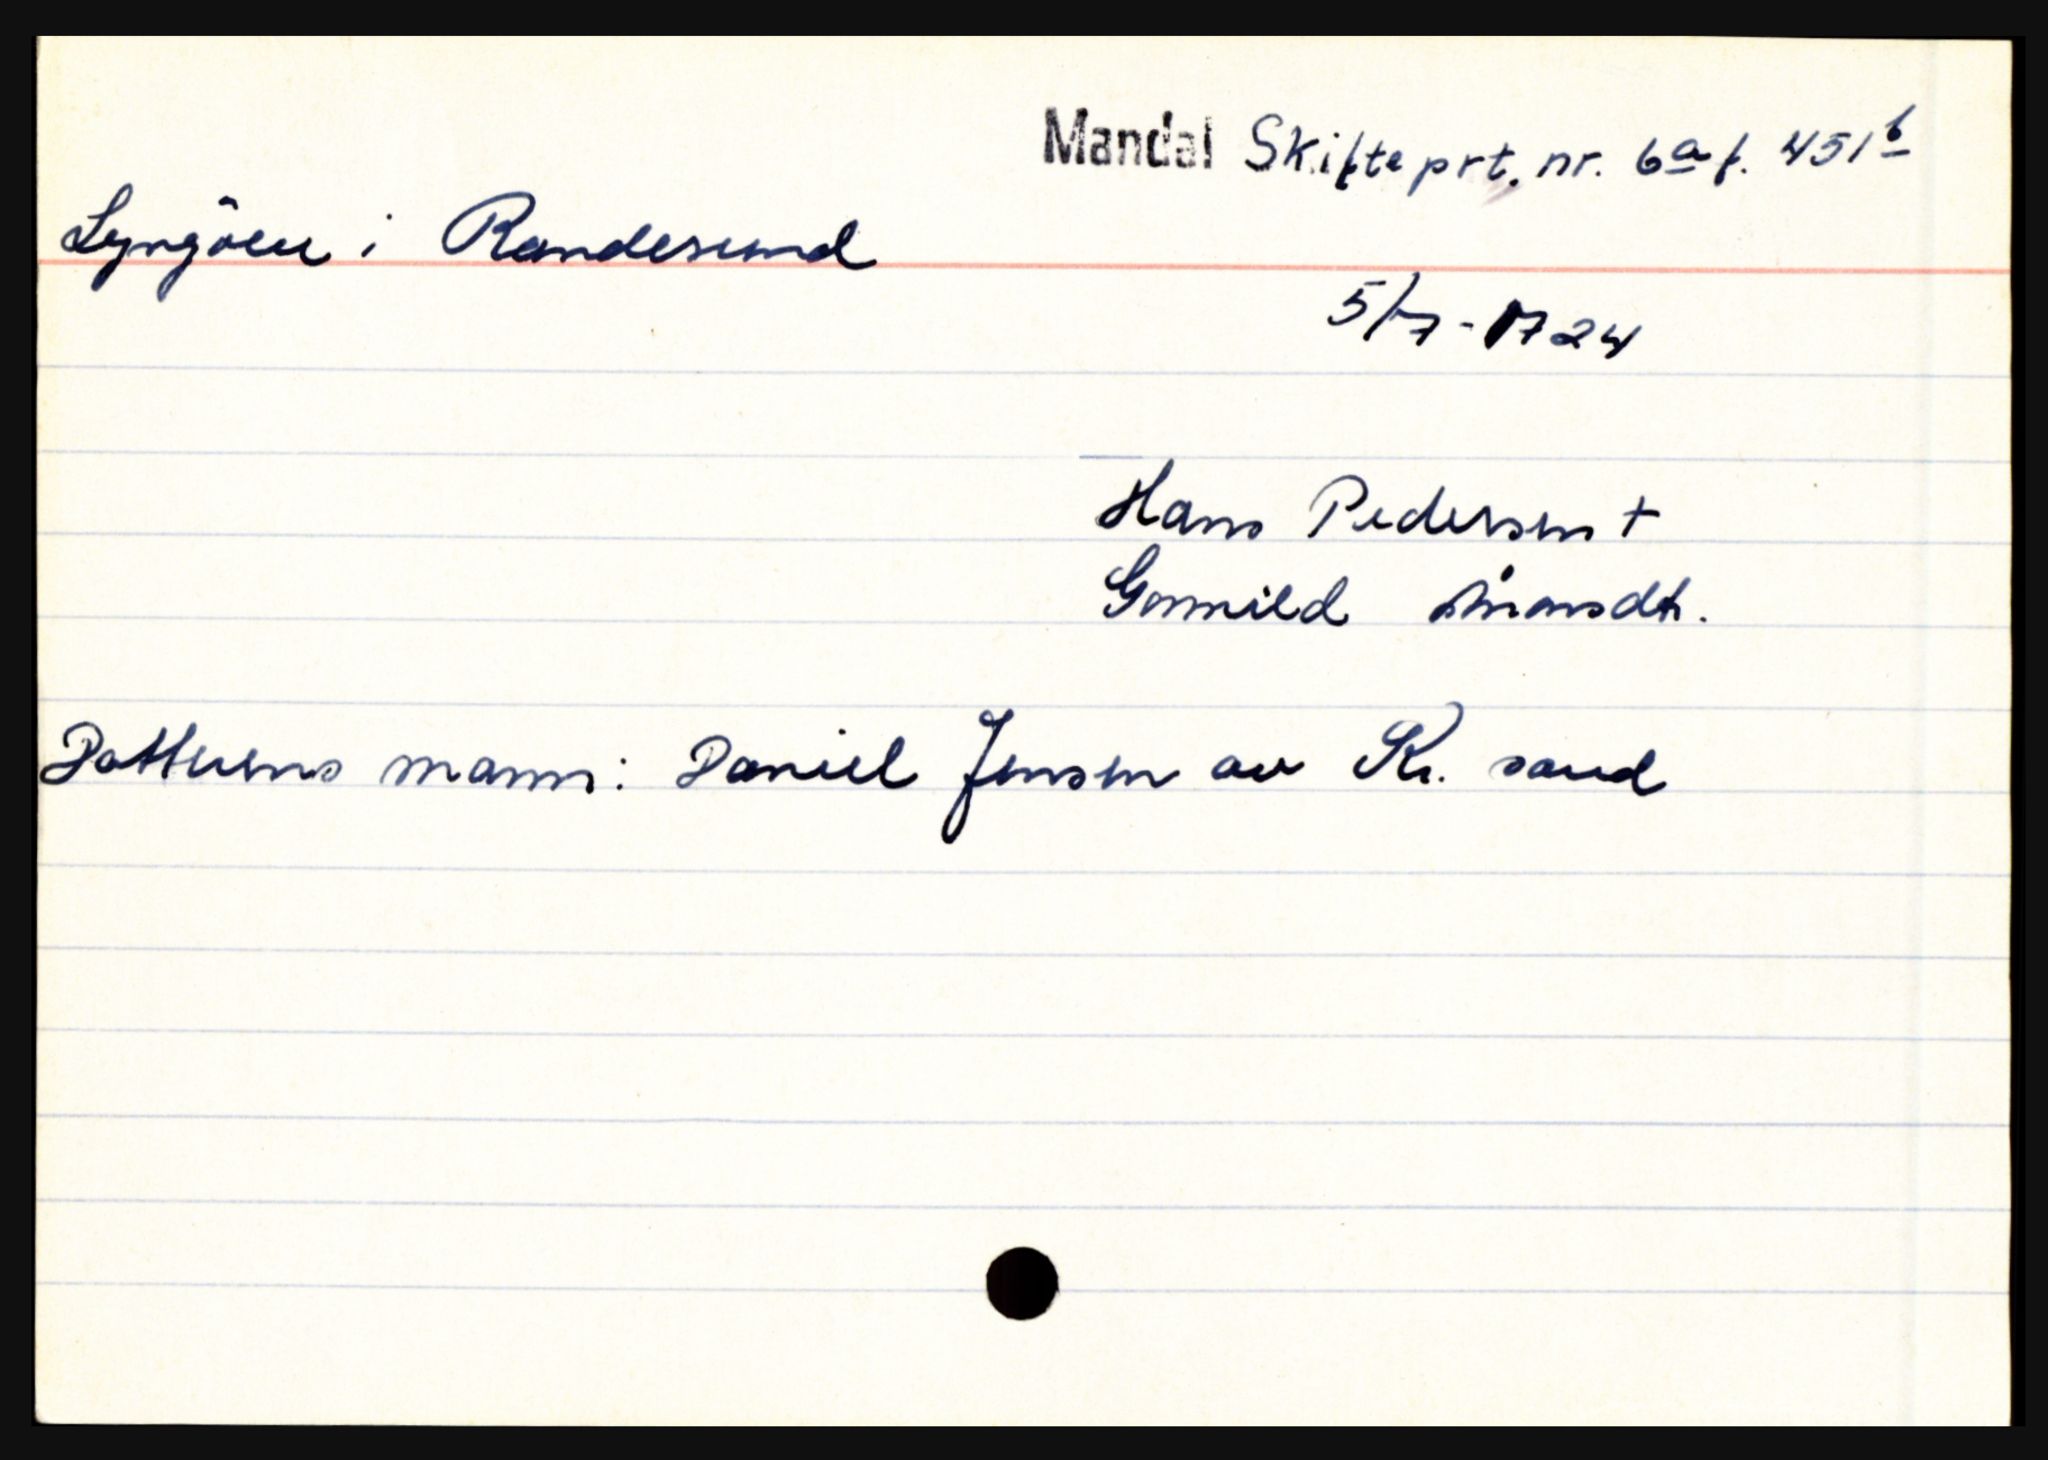 Mandal Skifteprt. nr. 6a f. 451b
Lyngöen i Randesund
5/7-1724
Hans Pedersen +
Gonnild Åmonsdtr.
Datterens mann: Daniel Jensen av Kr. sand